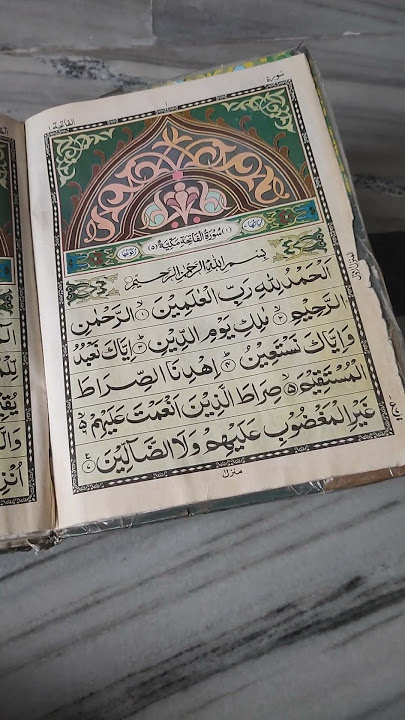 سورة
١
الفاتحة ١
(١) سُورَةُ الْفَاتِحَةِ مَكِّيَّةٌ (٥)
بِسْمِ اللهِ الرَّحْمٰنِ الرَّحِيْمِ
اَلْحَمْدُ لِلّٰهِ رَبِّ الْعٰلَمِيْنَ ۙ١ الرَّحْمٰنِ
الرَّحِيْمِ ۙ٢ مٰلِكِ يَوْمِ الدِّيْنِ ؕ٣ اِيَّاكَ نَعْبُدُ
وَاِيَّاكَ نَسْتَعِيْنُ ؕ٤ اِهْدِنَا الصِّرَاطَ
الْمُسْتَقِيْمَ ۙ٥ صِرَاطَ الَّذِيْنَ اَنْعَمْتَ عَلَيْهِمْ ۙ۬٦
غَيْرِ الْمَغْضُوْبِ عَلَيْهِمْ وَلَا الضَّآلِّيْنَ ٧
منزل